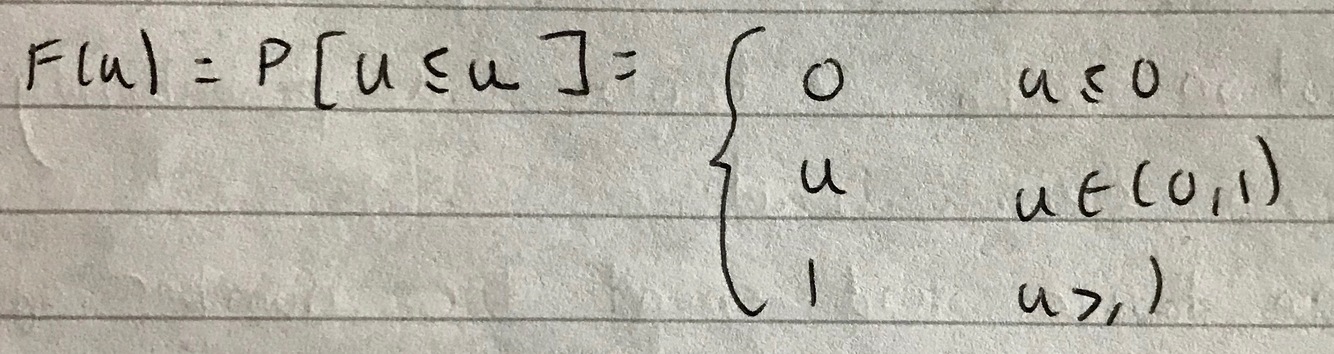 F(u) = P[u ≤ u] = { 0 u ≤ 0
u u ∈ (0,1)
1 u ≥ 1